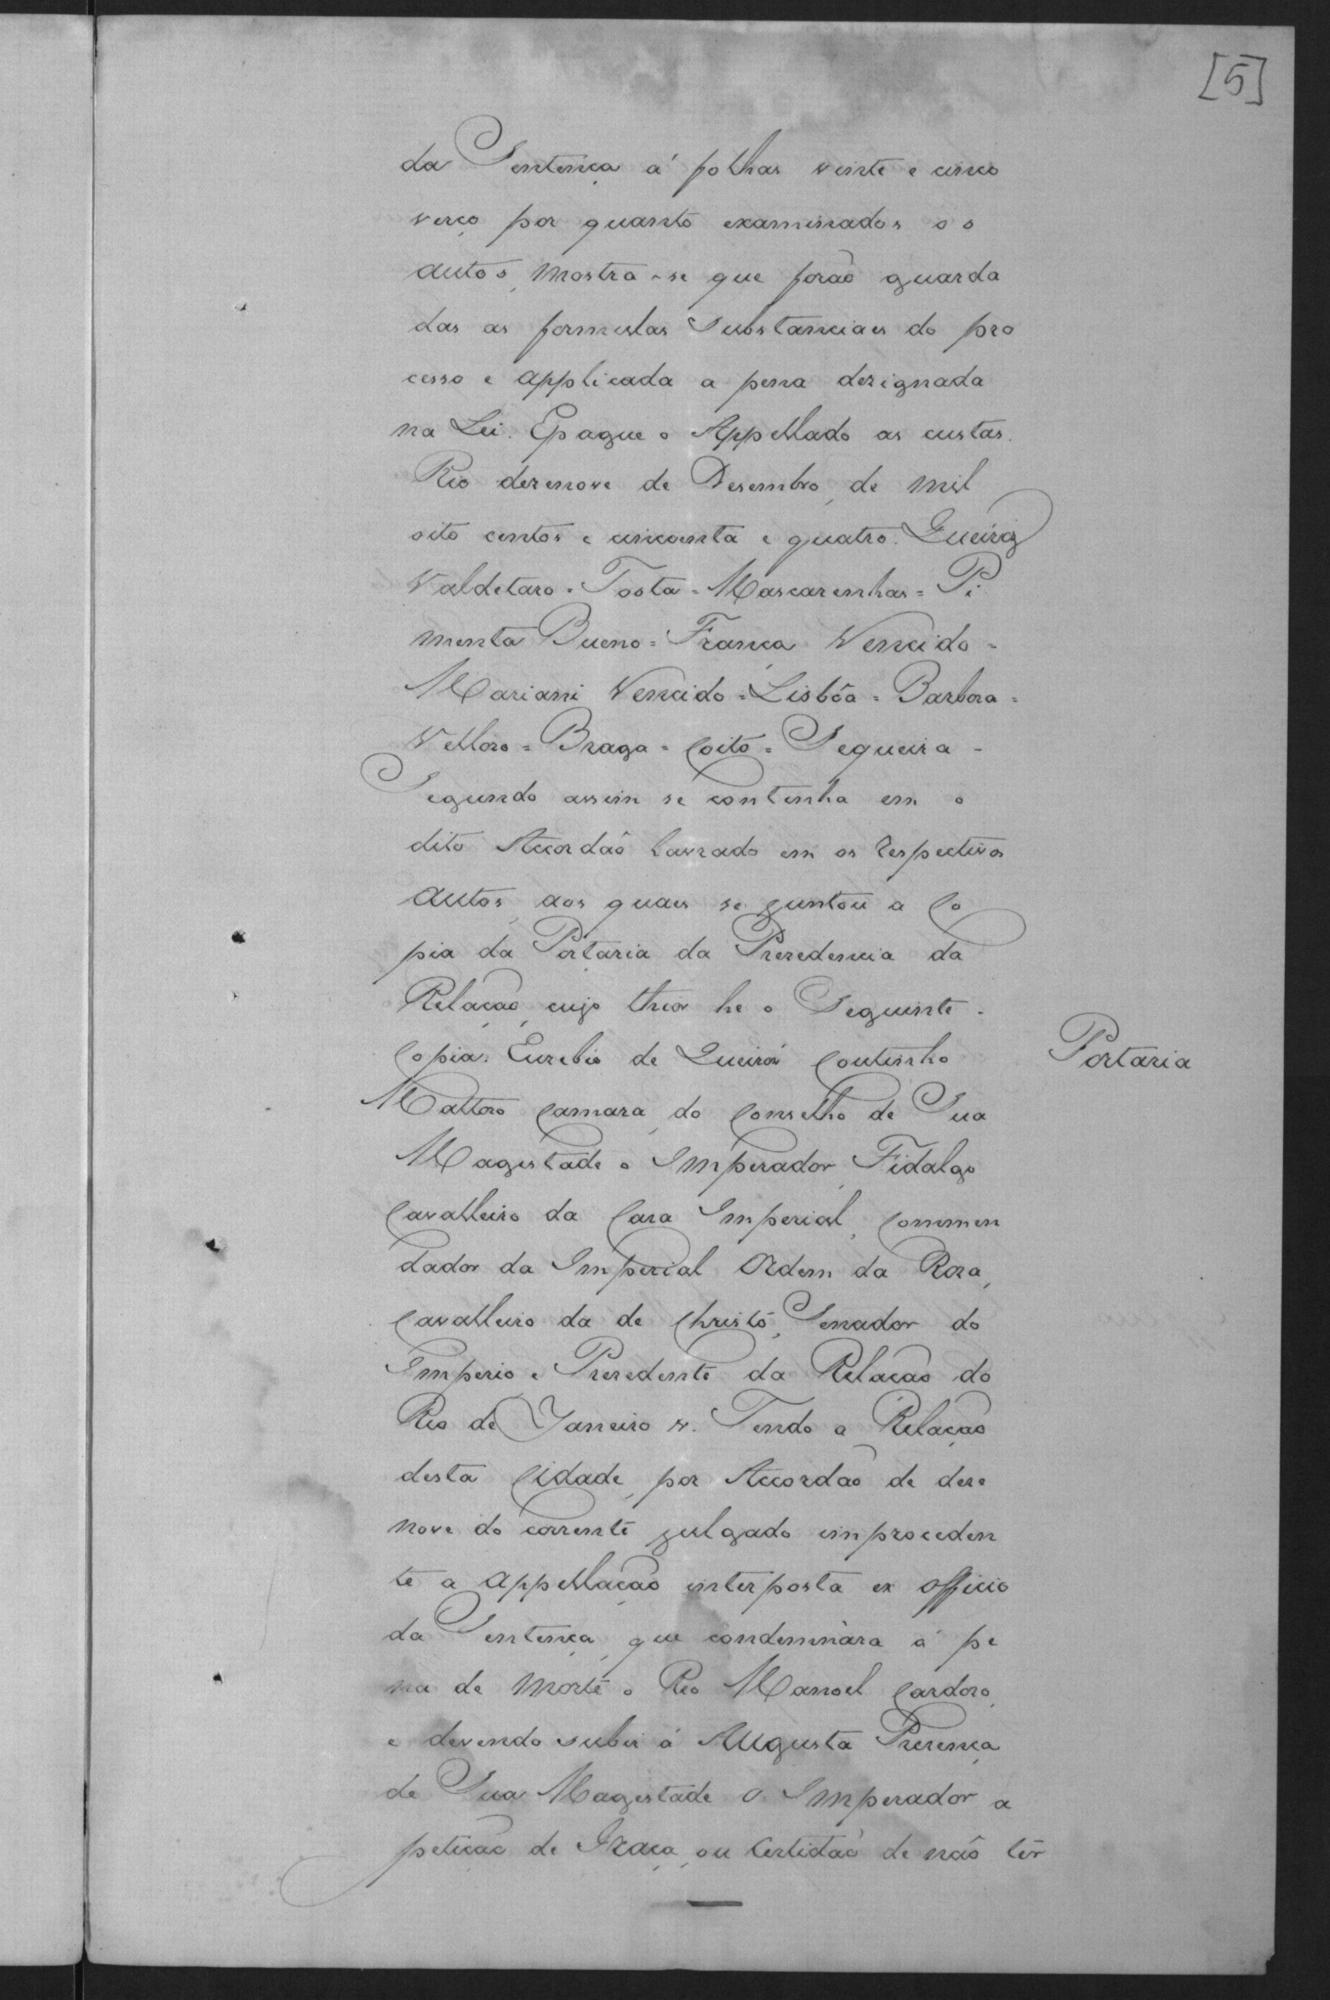 [5]
da Sentença á folhas vinte e cinco
verço por quanto examinados os
autos, mostra-se que forão guarda
das as formulas Substanciaes do pro
cesso e applicada a pena designada
na Lei. Epague o Appellado as custas.
Rio dezenove de Desembro, de mil
oito centos e cincoenta e quatro. Queiróz
Valdetaro = Tosta = Mascarenhas = Pi
menta Bueno = Franca Vencido =
Mariani Vencido = Lisbôa = Barbosa =
Velloso = Braga = Coito = Sequeira -
Segundo assim se continha em o
dito Accordaõ lavrado em os respectivos
autos, aos quaes se juntou a Co
pia da Portaria da Prezedencia da
Relação, cujo theor he o Seguinte -
Copia. Euzebio de Queiróz Coutinho
Portaria
Mattoso Camara, do Conselho de Sua
Magestade o Imperador, Fidalgo
Cavalleiro da Caza Imperial, Commen
dador da Imperial Ordem da Roza,
Cavalleiro da de Christo, Senador do
Imperio e Prezedente da Relação do
Rio de Janeiro &. Tendo a Relação
desta Cidade, por Accordaõ de deze
nove do corrente julgado improceden
te a appellação interposta ex officio
da Sentença, que condemnára á pe
na de morte o Reo Manoel Cardozo,
e devendo subir á Augusta Prezença
de Sua Magestade O Imperador a
petição de Graça, ou Certidaõ de naõ têr